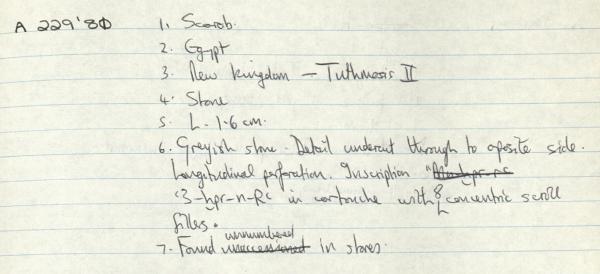 A 229'80
1. Scarab.
2. Egypt
3. New Kingdom – Tuthmosis II
4. Stone
5. L. 1·6 cm.
6. Greyish stone. Detail undercut through to oposite side.
Longitudinal perforation. Inscription "
'3-ḫpr-n-Rʿ in cartouche with 8 concentric scroll
filles.
7. Found unaccessioned unnumbered in stores.